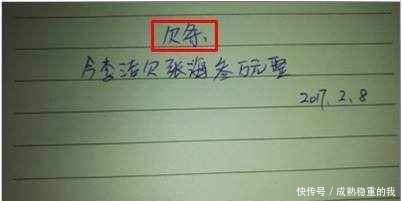 欠条、
今李洁欠张海叁万元整
2017.2.8
快传号／成熟稳重的我